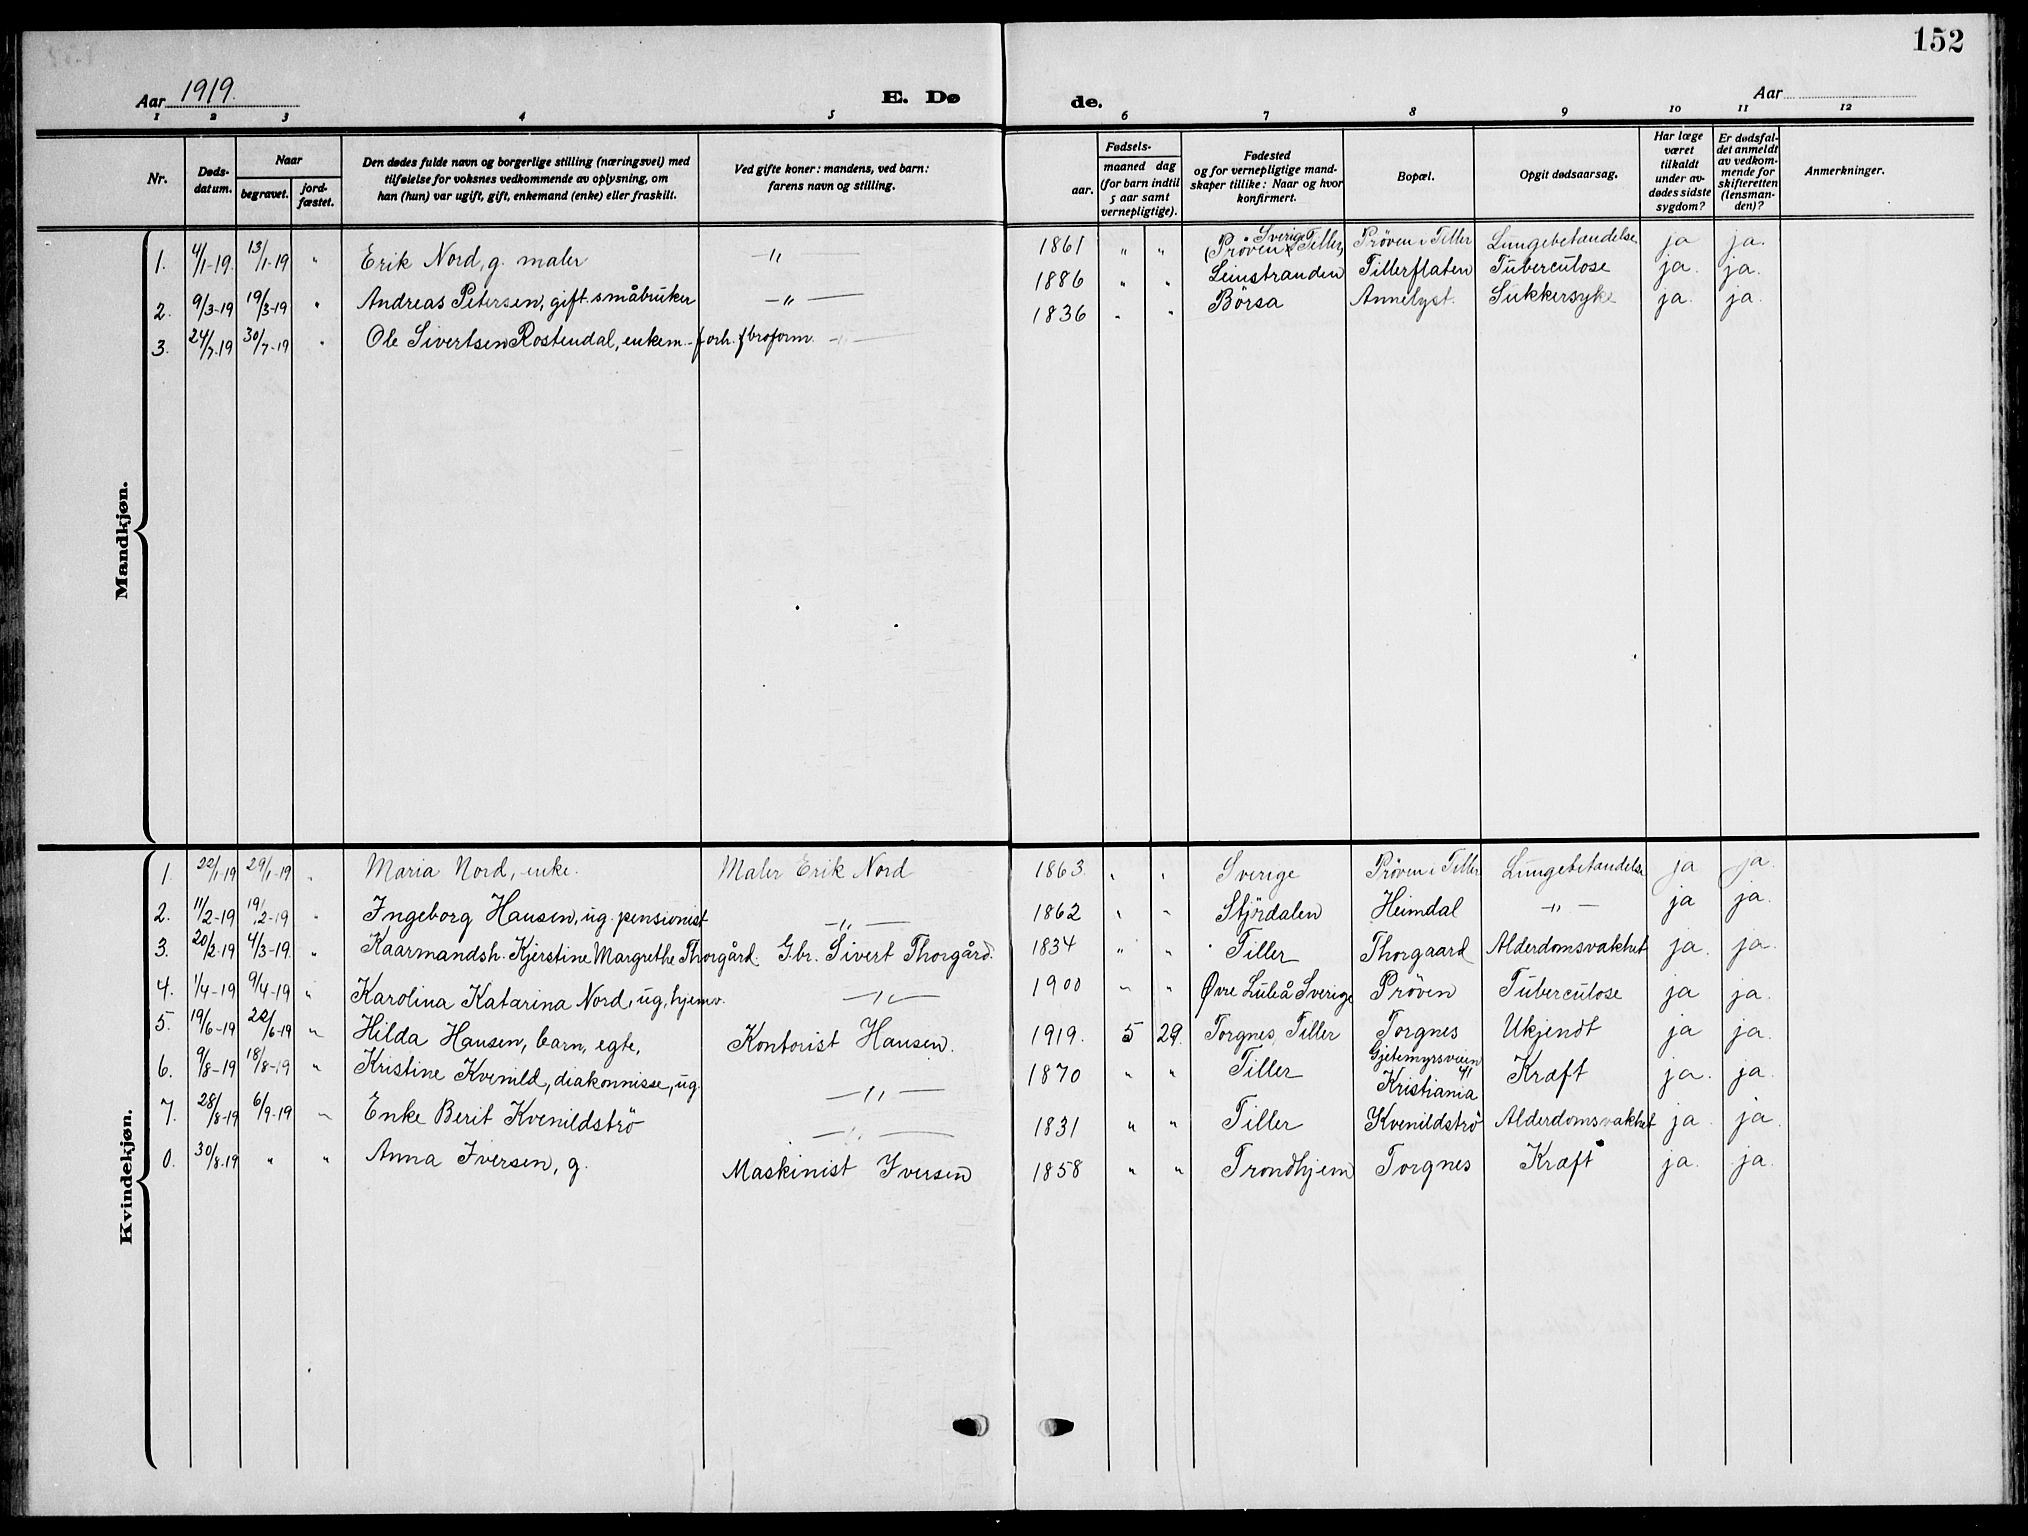 152
Aar 1919.
E. Dø
de.
Aar
1 2 3 4 5 6 7 8 9 10 11 12
Nr.
Døds-
datum.
Naar
begravet.
jord-
fæstet.
Den dødes fulde navn og borgerlige stilling (næringsvei) med
tilføielse for voksnes vedkommende av oplysning, om
han (hun) var ugift, gift, enkemand (enke) eller fraskilt.
Ved gifte koner: mandens, ved barn:
farens navn og stilling.
Fødsels-
aar.
maaned dag
(for barn indtil
5 aar samt
vernepligtige).
Fødested
og for vernepligtige mand-
skaper tillike: Naar og hvor
konfirmert.
Bopæl.
Opgit dødsaarsag.
Har læge
været
tilkaldt
under av-
dødes sidste
sygdom?
Er dødsfal-
det anmeldt
av vedkom-
mende for
skifteretten
(lensman-
den)?
Anmerkninger.
Mandkjøn.
1. 4/1-19. 13/1-19 " Erik Nord, g. maler —"— 1861 " " Sverige (Prøven i Tiller) Prøven i Tiller Lungebetændelse ja ja.
2. 9/3-19 19/3-19 " Andreas Petersen, gift småbruker —"— 1886 " " Leinstranden Tillerflaten Tuberculose ja. ja.
3. 24/7-19 30/7-19 " Ole Sivertsen Rostendal, enkem. forh. fbroform. —"— 1836 " " Børsa Annelyst. Sukkersyke ja. ja.
Kvindekjøn.
1. 22/1-19 29/1-19 " Maria Nord, enke. Maler Erik Nord 1863 " " Sverige Prøven i Tiller Lungebetændelse ja ja.
2. 11/2-19 19/2-19 " Ingeborg Hansen, ug. pensionist —"— 1862 " " Stjørdalen Heimdal —"— ja ja.
3. 20/2-19 4/3-19. " Kaarmandsk. Kjerstine Margrethe Thorgård. Gbr. Sivert Thorgård. 1834 " " Tiller Thorgaard Alderdomsvakhet ja. ja.
4. 1/4-19 9/4-19 " Karolina Katarina Nord, ug, hjemv. —"— 1900 " " Øvre Luleå Sverige Prøven Tuberculose ja ja.
5. 19/6-19 22/6-19 " Hilda Hansen, barn, egte, Kontorist Hansen. 1919. 5 29. Torgnes, Tiller Torgnes Ukjendt ja ja.
6. 9/8-19 18/8-19 " Kristine Kvenild, diakonnisse, ug. —"— 1870 " " Tiller Gjetemyrsveien 41 Kristiania Kræft ja. ja.
7. 28/8-19 6/9-19 " Enke Berit Kvenildstrø —"— 1831 " " Tiller Kvenildstrø Alderdomsvakhet ja. ja
0. 30/8-19 " " Anna Iversen, g. Maskinist Iversen 1858 " " Trondhjem Torgnes Kræft ja. ja.